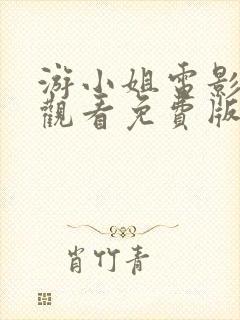 游小姐電影
觀看免費版
肖竹青